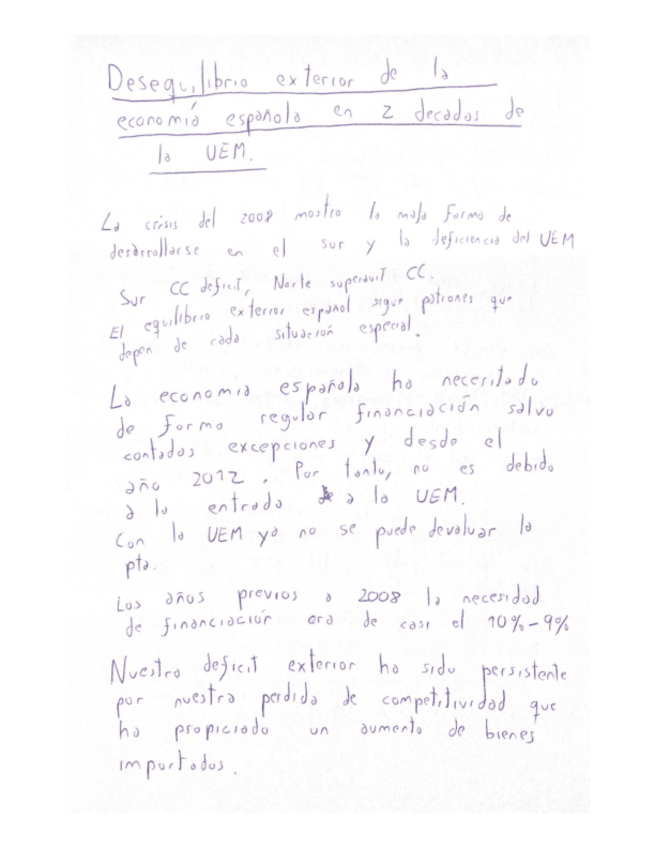 Desequilibrio exterior de la
economía española en 2 decadas de
la UEM.
La crisis del 2008 mostro la mala forma de
desarrollarse en el sur y la deficiencia del UEM
Sur CC deficit, Norte superavit CC.
El equilibrio exterior español sigue patrones que
depen de cada situación especial.
La economia española ha necesitado
de forma regular financiación salvo
contadas excepciones y desde el
año 2012. Por tanto, no es debido
a la entrada a la UEM.
Con la UEM ya no se puede devaluar la
pta.
Los años previos a 2008 la necesidad
de financiación era de casi el 10%-9%
Nuestro deficit exterior ha sido persistente
por nuestra perdida de competitividad que
ha propiciado un aumento de bienes
importados.